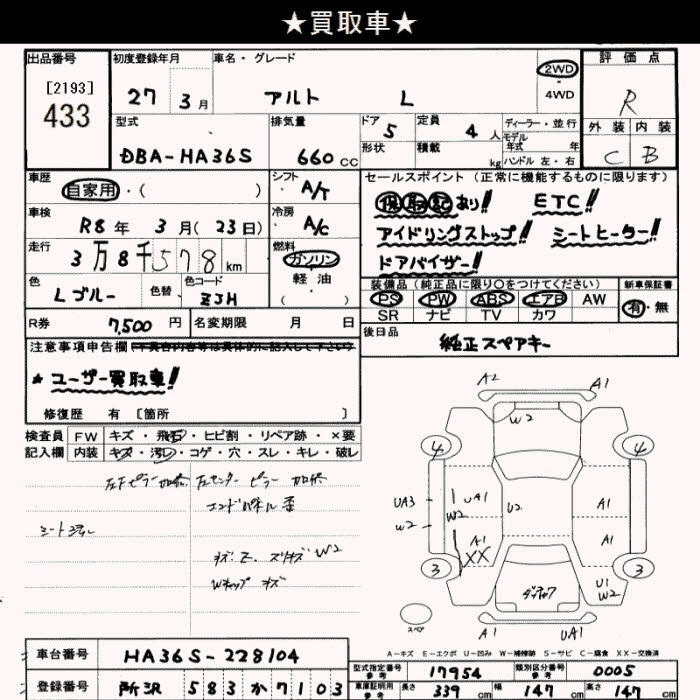 ★買取車★
出品番号 初度登録年月 車名・グレード 2WD 評価点
[2193] 433 27 3月 アルト L 4WD R
型式 排気量 ドア 5 定員 4人 ディーラー・並行 外装 内装
DBA-HA36S 660cc 形状 積載 kg モデル年式 年 C B
ハンドル 左・右
車歴 自家用・( ) シフト A/T セールスポイント(正常に機能するものに限ります)
車検 R8年 3月(23日) 冷房 A/C 保取記あり!! ETC!!
走行 3万8千578km 燃料 ガソリン アイドリングストップ!! シートヒーター!!
軽油 ドアバイザー!!
色 Lブルー 色替 色コード ZJH ・( ) 装備品(純正品に限り○をつけてください) 新車保証書
PS PW ABS エアB AW 有・無
SR ナビ TV カワ
R券 7,500円 名変期限 月 日 後日品 純正スペアキー
注意事項申告欄
★ユーザー買取車!!
修復歴 有 [箇所 ]
検査員 FW キズ・飛石・ヒビ割・リペア跡・×要
記入欄 内装 キズ・汚レ・コゲ・穴・スレ・キレ・破レ
左Fピラー加修 左センターピラー加修
エンドパネル歪
シート汚レ
W2
Wキャップ キズ
A2 A1
W2
4 4
UA3 W2 UA1 W2 U2 A1
A1 XX A1
3 3
U1 W2
A1 UA1
スペア
A-キズ E-エクボ U-凹み W-補修跡 S-サビ C-腐食 XX-交換済
車台番号 HA36S-228104 型式指定番号 参考 17954 類別区分番号 参考 0005
登録番号 所沢 583か7103 車庫証明用 参考 長さ 339cm 幅 147cm 高さ 147cm